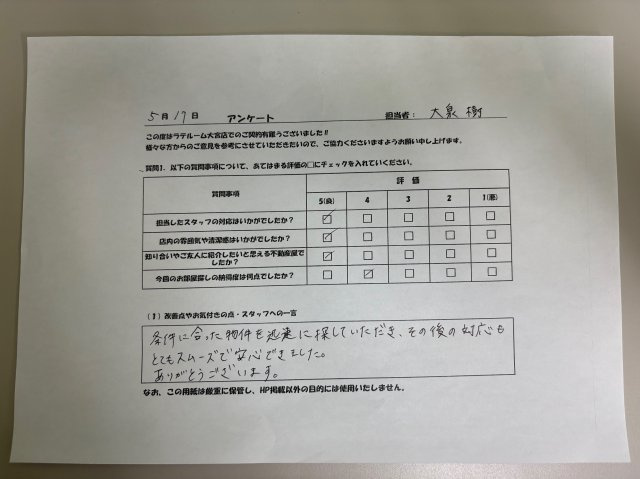 5月17日 アンケート 担当者： 大泉 樹
この度はラテルーム大宮店でのご契約有難うございました!!
様々な方からのご意見を参考にさせていただきたいので、ご協力くださいますようお願い申し上げます。
質問1．以下の質問事項について、あてはまる評価の□にチェックを入れてください。
質問事項 評 価
5(良) 4 3 2 1(悪)
担当したスタッフの対応はいかがでしたか？
店内の雰囲気や清潔感はいかがでしたか？
知り合いやご友人に紹介したいと思える不動産屋で
したか？
今回のお部屋探しの納得度は何点でしたか？
(1) 改善点やお気付きの点・スタッフへの一言
条件に合った物件を迅速に探していただき、その後の対応も
とてもスムーズで安心できました。
ありがとうございます。
なお、この用紙は厳重に保管し、HP掲載以外の目的には使用いたしません。